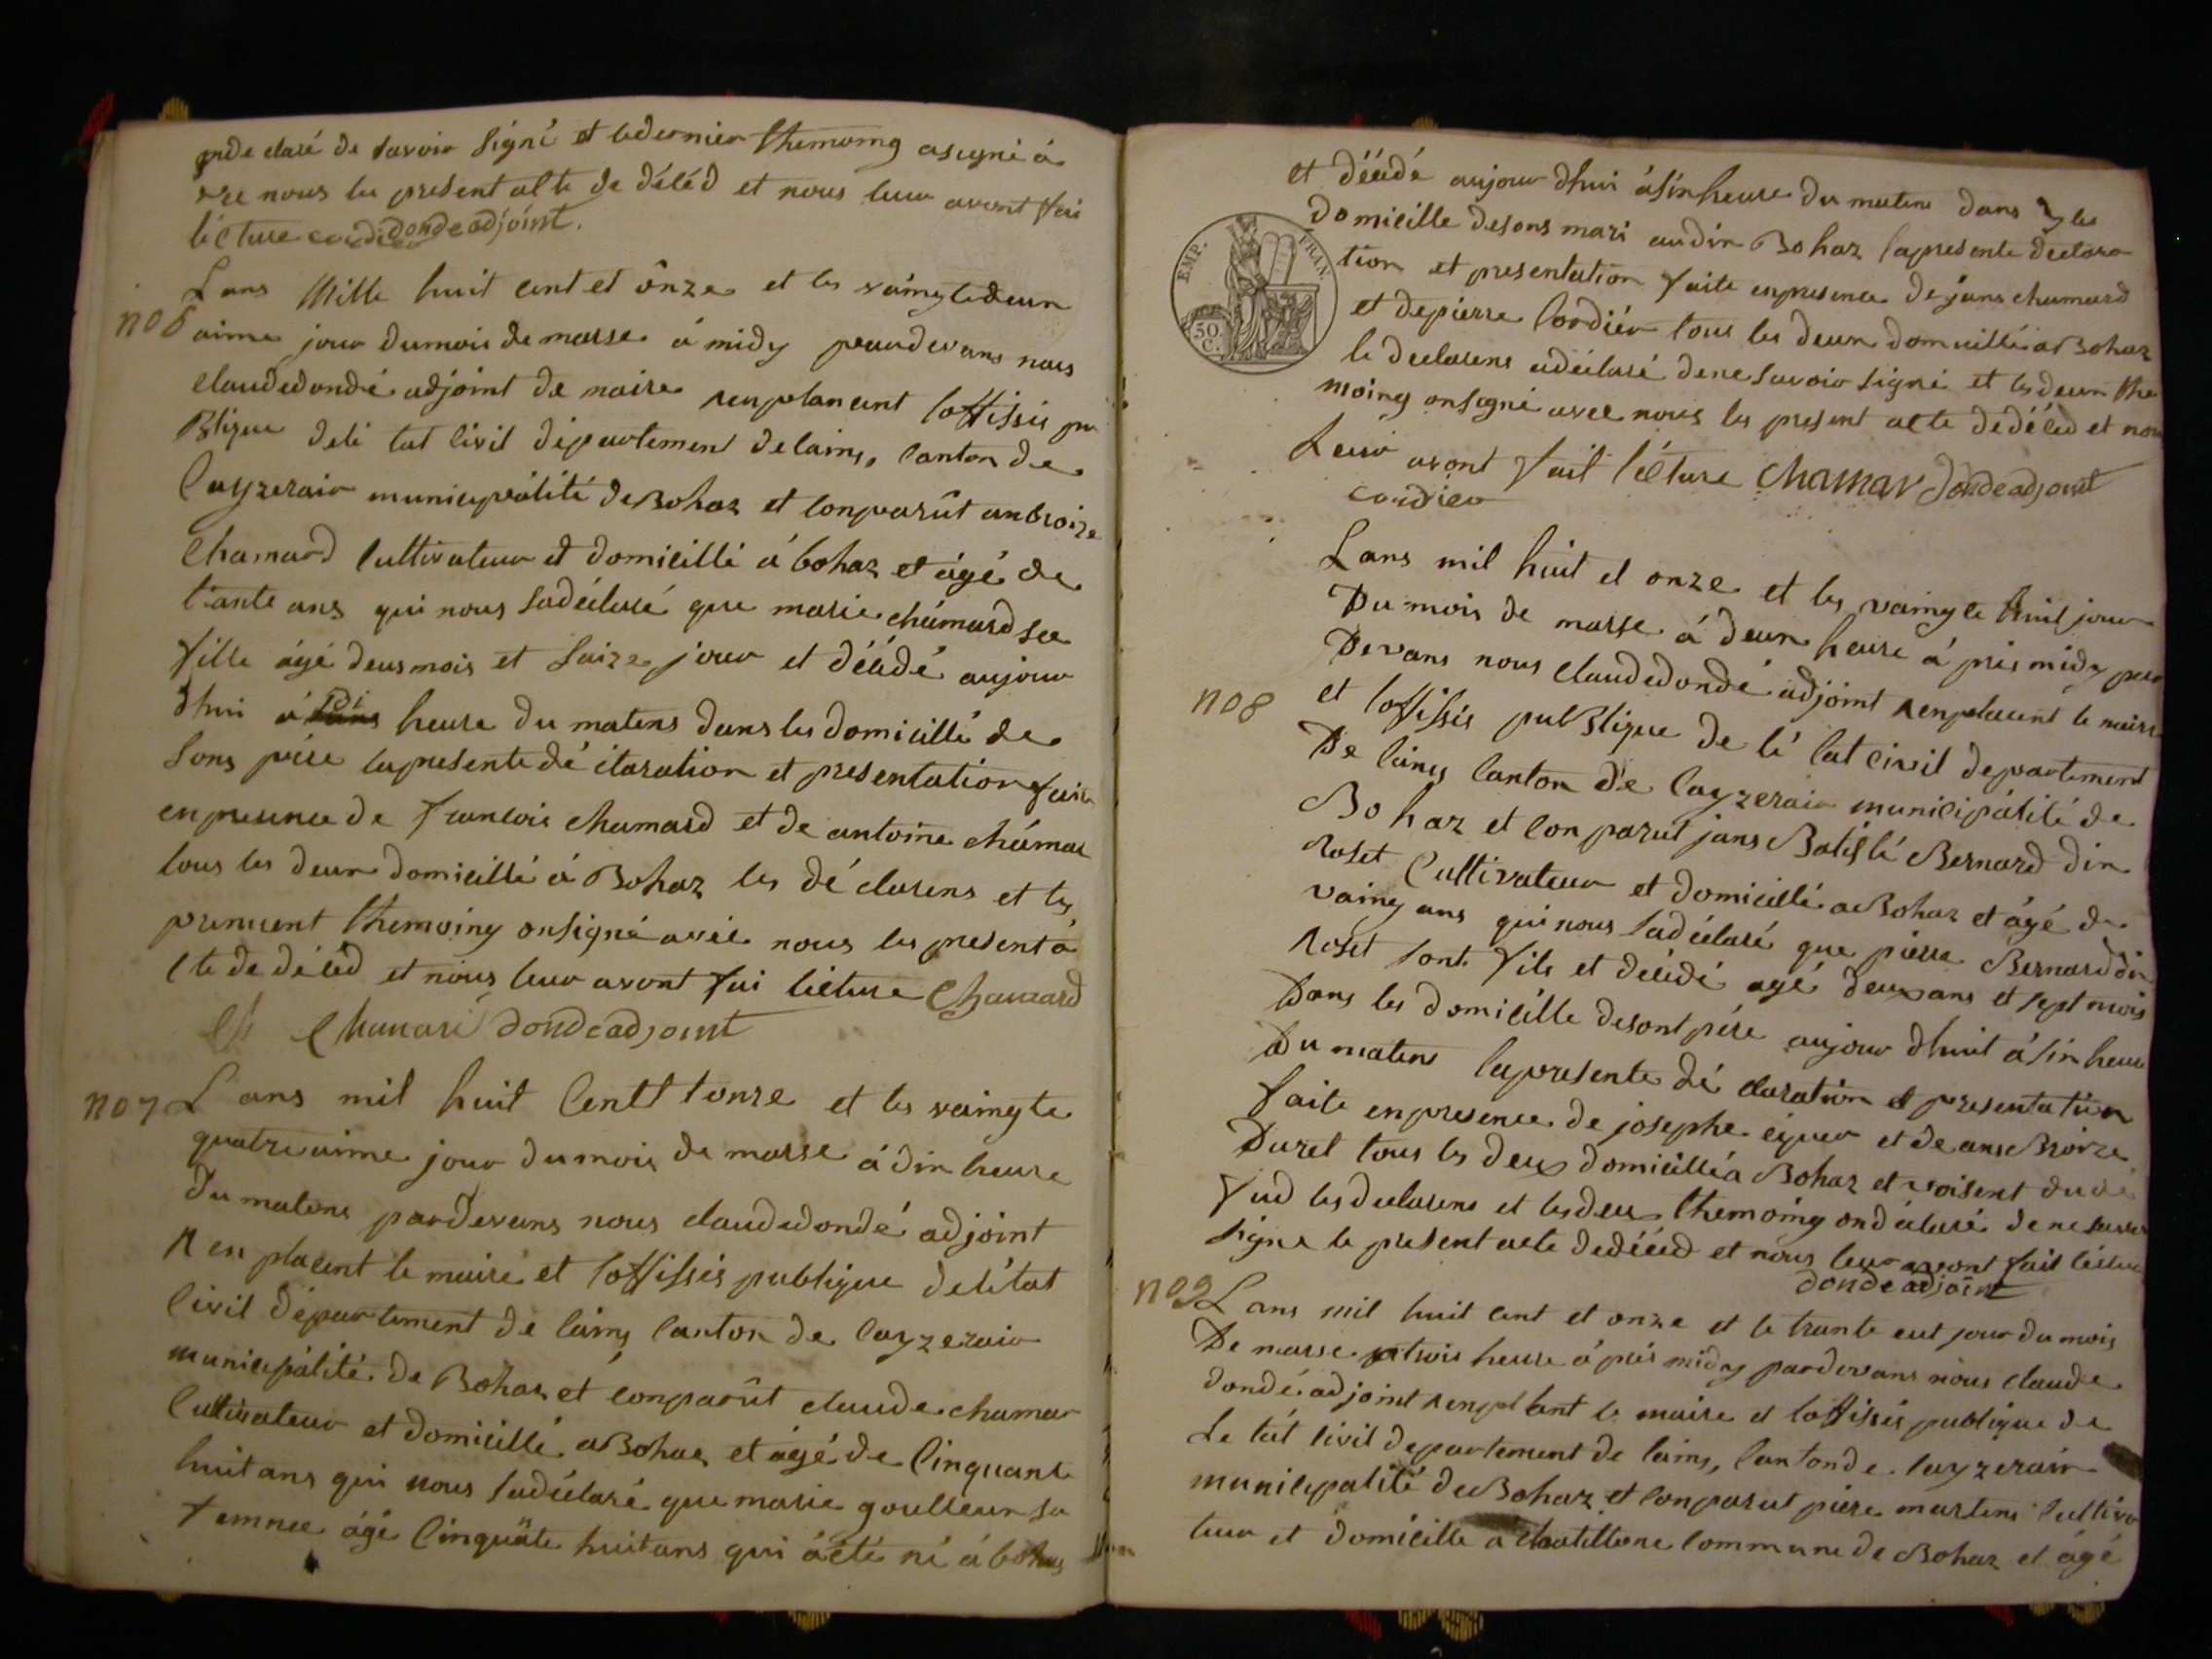 de claré de savoir signé et le dernier themoing a signé a
vec nous les present alte de décéd et nous leur avont fai
lécture cordi donde adjoint.
no 6
Lans Mille huit cent et ônze et les vaingtedeun
aime jour du mois de marse á midy pardevans nous
claudedondé adjoint de maire renplancent loffissié pu
Bligue deli tat civil département delaing, canton de
Cayzeraia municipalité de Bohaz et conparût anbroize
Chamard Cultivateur et domicillié á bohaz et ágé de
trante ans qui nous sadéclaré que marie chámard sa
fille ágé deus mois et saize jour et décédé aujour
dhui á di heure du matens dans les domicillé de
sons pére la presente dé claration et presentation faite
en presence de francois chamard et de antoine chámar
tous les deun domicillé á Bohaz les dé clarens et les
premient themoing onsigné avec nous les present á
cte de décéd et nous leur avont fai lécture Chamard
Ch Chamard donde adjoint
no 7
Lans mil huit Centt tonze et les vaingte
quatre aime jour du mois de marse á din heure
du matens pardevans nous claudedondé adjoint
renplacent le maire et loffissié publigue delétat
civil département de laing canton de Cayzeraia
municipálité de Bohaz et conparût claude chamar
Cultivateur et domicillé a Bohaz et ágé de Cinquante
huit ans qui nous sadéclaré que marie goulleun sa
femnee ágé Cinquäte huit ans qui á été né á bohaz
et décédé aujour dhui á sin heure du matens dans les
domicille desons mari audin Bohaz lapresente declara
tion et presentation faite enpresence de jans chamard
et depierre Cordiér tous les deun domicillié a Bohaz
le declarens adéclaré dene savoir signé et les deun the
moing onsigné avec nous les present acte dedécéd et nous
Leur avont fait lécture chamar donde adjoint
cordier
EMP. FRAN.
50. C.
no 8
Lans mil huit et onze et les vaingte huit jour
Du mois de marse á deun heure á prés midy par
Devans nous claudedondé adjoint renplacent le maire
et loffissié pubBligue de lé tat civil departement
De laing canton de Cayzeraia municipálité de
Bohaz et conparut jans Batisté Bernard din
roset Cultivateur et domicillé a Bohaz et ágé de
vaing ans qui nous sadéclaré que pierre Bernard din
roset sont fils et décédé agé deux ans et sept mois
Dans les domicille desont pére aujour dhuit á sin heure
du matens lapresente dé claration et presentation
faite en presence de josephe eguer et de ans Broize
Duret tous les deux domicillé a Bohaz et voisent du dé
fud les declarens et les deux themoing ondéclaré de ne savoir
signe le present acte dedécéd et nous leur avont fait léctur
donde adjoint
no 9
Lans mil huit cent et onze et le trante eut jour du mois
De marse a trois heure á prés midy pardevans nous claude
dondé adjoint renplant le maire et loffissié publique de
Le tát civil departement de laing, canton de Cayzeraia
municipalité de Bohaz et conparut piére martens cultiva
teur et domicille a chatillone commune de Bohaz et ágé